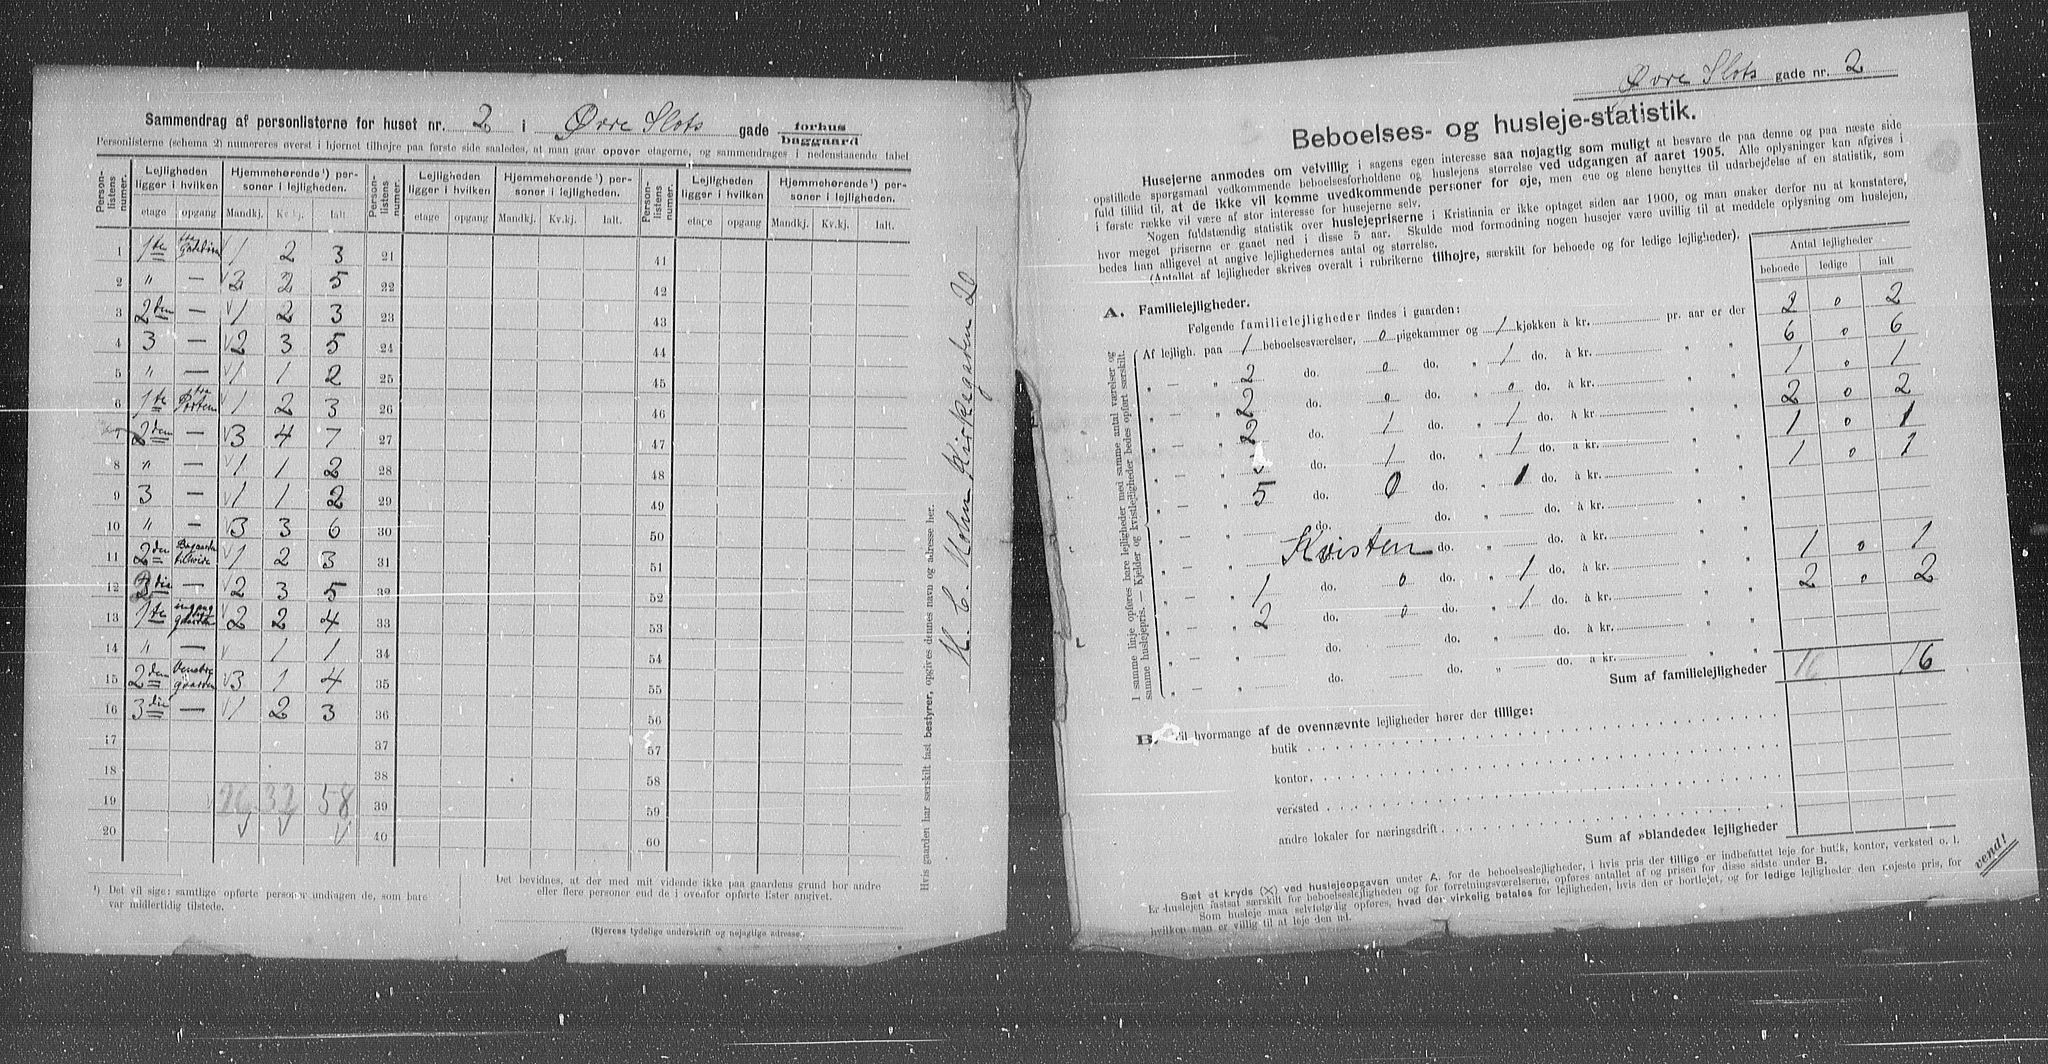 Sammendrag af personlisterne for huset nr. 2 i Øvre Slots gade forhus
baggaard
Personlisterne (schema 2) numereres øverst i hjørnet tilhøjre paa første side saaledes, at man gaar opover etagerne, og sammendrages i nedenstaaende tabel
Person-listens numer.
Lejligheden ligger i hvilken
Hjemmehørende¹) personer i lejligheden.
Person-listens numer.
Lejligheden ligger i hvilken
Hjemmehørende¹) personer i lejligheden.
Person-listens numer.
Lejligheden ligger i hvilken
Hjemmehørende¹) personer i lejligheden.
etage opgang Mandkj. Kv.kj. Ialt. etage opgang Mandkj. Kv.kj. Ialt. etage opgang Mandkj. Kv.kj. Ialt.
1 1te 1 2 3 21 41
2 " — 3 2 5 22 42
3 2den — 1 2 3 23 43
4 3 — 2 3 5 24 44
5 " — 1 1 2 25 45
6 1te Porten 1 2 3 26 46
7 2den — 3 4 7 27 47
8 " — 1 1 2 28 48
9 3 — 1 1 2 29 49
10 " — 3 3 6 30 50
11 2den 1 2 3 31 51
12 3die — 2 3 5 32 52
13 1te 2 2 4 33 53
14 " — 1 1 34 54
15 2den 3 1 4 35 55
16 3die — 1 2 3 36 56
17 37 57
18 38 58
19 26 32 58 39 59
20 40 60
¹) Det vil sige: samtlige opførte personer undtagen de, som bare
var midlertidig tilstede.
Det bevidnes, at der med mit vidende ikke paa gaardens grund bor andre
eller flere personer end de i ovenfor opførte lister angivet.
(Ejerens tydelige underskrift og nøjagtige adresse.)
Hvis gaarden har særskilt fast bestyrer, opgives dennes navn og adresse her.
H. C. Holm Kirkegaten 20
Øvre Slots gade nr. 2
Beboelses- og husleje-statistik.
Husejerne anmodes om velvillig i sagens egen interesse saa nøjagtig som muligt at besvare de paa denne og paa næste side
opstillede spørgsmaal vedkommende beboelsesforholdene og huslejens størrelse ved udgangen af aaret 1905. Alle oplysninger kan afgives i
fuld tillid til, at de ikke vil komme uvedkommende personer for øje, men ene og alene benyttes til udarbejdelse af en statistik, som
i første række vil være af stor interesse for husejerne selv.
Nogen fuldstændig statistik over huslejepriserne i Kristiania er ikke optaget siden aar 1900, og man ønsker derfor nu at konstatere,
hvor meget priserne er gaaet ned i disse 5 aar. Skulde mod formodning nogen husejer være uvillig til at meddele oplysning om huslejen,
bedes han alligevel at angive lejlighedernes antal og størrelse.
(Antallet af lejligheder skrives overalt i rubrikerne tilhøjre, særskilt for beboede og for ledige lejligheder).
Antal lejligheder
beboede ledige ialt
A. Familielejligheder.
Følgende familielejligheder findes i gaarden:
I samme linje opføres bare lejligheder med samme antal værelser og
samme huslejepris. — Kjelder og kvistlejligheder bedes opført særskilt.
Af lejligh. paa 1 beboelsesværelser, 0 pigekammer og 1 kjøkken à kr. pr. aar er der 2 0 2
" — " 2 do. 0 do. " 1 do. à kr. " " 6 0 6
" — " 2 do. 0 do. " 0 do. à kr. " " 1 0 1
" — " 2 do. 1 do. " 1 do. à kr. " " 2 0 2
" — " do. 1 do. " 1 do. à kr. " " 1 0 1
" — " 5 do. 0 do. " 1 do. à kr. " " 1 0 1
" — " do. do. " do. à kr. " "
Kvisten do. " do. à kr. " "
" — " 1 do. 0 do. " 1 do. à kr. " " 1 0 1
" — " 2 do. 0 do. " 1 do. à kr. " " 2 0 2
" — " do. do. " do. à kr. " "
" — " do. do. " do. à kr. " "
Sum af familielejligheder 16 16
B. Til hvormange af de ovennævnte lejligheder hører der tillige:
butik
kontor
verksted
andre lokaler for næringsdrift
Sum af »blandede« lejligheder
Sæt et kryds (X) ved huslejeopgaven under A. for de beboelseslejligheder, i hvis pris der tillige er indbefattet leje for butik, kontor, verksted o. l.
Er huslejen fastsat særskilt for beboelseslejligheden og for forretningsværelserne, opføres antallet af og prisen for disse sidste under B.
Som husleje maa selvfølgelig opføres, hvad der virkelig betales for lejligheden, hvis den er bortlejet, og for ledige lejligheder den højeste pris, for
hvilken man er villig til at leje den ud.
vend!